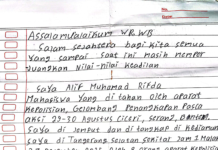 Assalamualaikum WR.WB
Salam sejahtera bagi kita semua
Yang sampai saat ini masih memper
juangkan Nilai-nilai Keadilan
Saya Alif Muhamad Rifda
Mahasiswa yang di tahan oleh aparat
Kepolisian, Gelombang Penangkapan Pasca
Aksi 29-30 Agustus
Saya di jemput dan di tangkap di kediaman
saya di Tangerang Selatan sekitar Jam 3 Malam